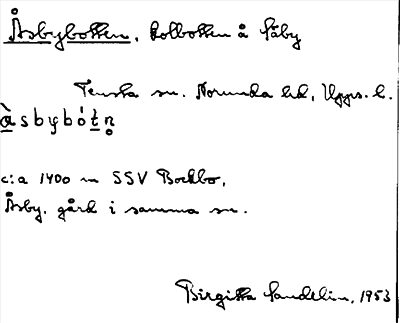 Åsbybotten, kolbotten å Säby
Tensta sn. Norunda hd, Upps. l.
àsbybòtn̥
c:a 1400 m SSV Bockbo,
Åsby, gård i samma sn.
Birgitta Sandelin, 1953